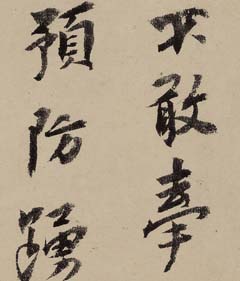 不敢牽
預防踴